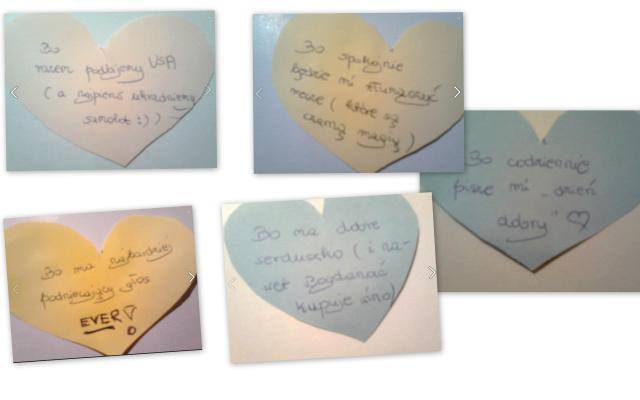 Bo
razem podbijemy USA
(a najpierw ukradniemy
samolot :) )
Bo spokojnie
będzie mi tłumaczyć
mecze (które są
czarną magią)
Bo codziennie
pisze mi "dzień
adory" ♡
Bo ma najbardziej
podniecający głos
EVER!
Bo ma dobre
serduszko (i na-
wet Bogdanać
kupuje wino)